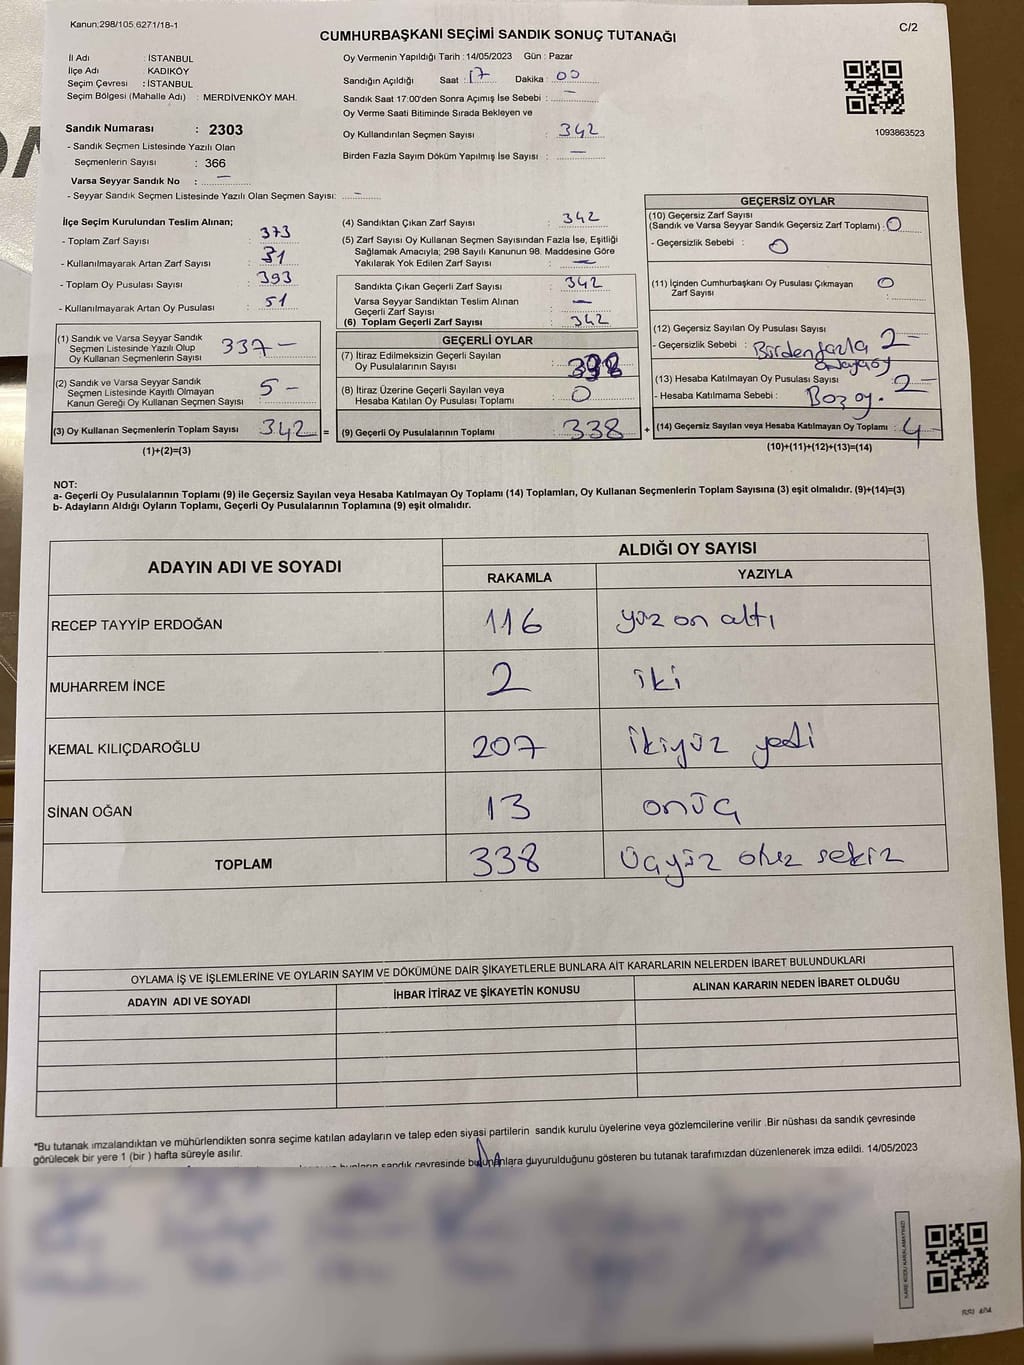 Kanun;298/105,6271/18-1
C/2
CUMHURBAŞKANI SEÇİMİ SANDIK SONUÇ TUTANAĞI
İl Adı : İSTANBUL
İlçe Adı : KADIKÖY
Seçim Çevresi : İSTANBUL
Seçim Bölgesi (Mahalle Adı) : MERDİVENKÖY MAH.
Sandık Numarası : 2303
- Sandık Seçmen Listesinde Yazılı Olan
Seçmenlerin Sayısı : 366
Varsa Seyyar Sandık No : —
- Seyyar Sandık Seçmen Listesinde Yazılı Olan Seçmen Sayısı: —
Oy Vermenin Yapıldığı Tarih : 14/05/2023 Gün : Pazar
Sandığın Açıldığı Saat : 17 Dakika : 00
Sandık Saat 17:00'den Sonra Açımış İse Sebebi : —
Oy Verme Saati Bitiminde Sırada Bekleyen ve
Oy Kullandırılan Seçmen Sayısı : 342
Birden Fazla Sayım Döküm Yapılmış İse Sayısı : —
1093863523
İlçe Seçim Kurulundan Teslim Alınan;
- Toplam Zarf Sayısı : 373
- Kullanılmayarak Artan Zarf Sayısı : 31
- Toplam Oy Pusulası Sayısı : 393
- Kullanılmayarak Artan Oy Pusulası : 51
(1) Sandık ve Varsa Seyyar Sandık
Seçmen Listesinde Yazılı Olup
Oy Kullanan Seçmenlerin Sayısı : 337 –
(2) Sandık ve Varsa Seyyar Sandık
Seçmen Listesinde Kayıtlı Olmayan
Kanun Gereği Oy Kullanan Seçmen Sayısı : 5 –
(3) Oy Kullanan Seçmenlerin Toplam Sayısı : 342 =
(1)+(2)=(3)
(4) Sandıktan Çıkan Zarf Sayısı : 342
(5) Zarf Sayısı Oy Kullanan Seçmen Sayısından Fazla İse, Eşitliği
Sağlamak Amacıyla; 298 Sayılı Kanunun 98. Maddesine Göre
Yakılarak Yok Edilen Zarf Sayısı : —
Sandıkta Çıkan Geçerli Zarf Sayısı : 342
Varsa Seyyar Sandıktan Teslim Alınan
Geçerli Zarf Sayısı : —
(6) Toplam Geçerli Zarf Sayısı : 342
GEÇERLİ OYLAR
(7) İtiraz Edilmeksizin Geçerli Sayılan
Oy Pusulalarının Sayısı :
(8) İtiraz Üzerine Geçerli Sayılan veya
Hesaba Katılan Oy Pusulası Toplamı : 0
(9) Geçerli Oy Pusulalarının Toplamı : 338 +
GEÇERSİZ OYLAR
(10) Geçersiz Zarf Sayısı
(Sandık ve Varsa Seyyar Sandık Geçersiz Zarf Toplamı) : 0
- Geçersizlik Sebebi : 0
(11) İçinden Cumhurbaşkanı Oy Pusulası Çıkmayan
Zarf Sayısı : 0
(12) Geçersiz Sayılan Oy Pusulası Sayısı : 2 –
- Geçersizlik Sebebi : Birden fazla
(13) Hesaba Katılmayan Oy Pusulası Sayısı : 2 –
- Hesaba Katılmama Sebebi : Boş oy.
(14) Geçersiz Sayılan veya Hesaba Katılmayan Oy Toplamı : 4 –
(10)+(11)+(12)+(13)=(14)
NOT:
a- Geçerli Oy Pusulalarının Toplamı (9) ile Geçersiz Sayılan veya Hesaba Katılmayan Oy Toplamı (14) Toplamları, Oy Kullanan Seçmenlerin Toplam Sayısına (3) eşit olmalıdır. (9)+(14)=(3)
b- Adayların Aldığı Oyların Toplamı, Geçerli Oy Pusulalarının Toplamına (9) eşit olmalıdır.
ADAYIN ADI VE SOYADI
ALDIĞI OY SAYISI
RAKAMLA YAZIYLA
RECEP TAYYİP ERDOĞAN 116 yüz on altı
MUHARREM İNCE 2 iki
KEMAL KILIÇDAROĞLU 207 ikiyüz yedi
SİNAN OĞAN 13 onüç
TOPLAM 338 üçyüz otuz sekiz
OYLAMA İŞ VE İŞLEMLERİNE VE OYLARIN SAYIM VE DÖKÜMÜNE DAİR ŞİKAYETLERLE BUNLARA AİT KARARLARIN NELERDEN İBARET BULUNDUKLARI
ADAYIN ADI VE SOYADI İHBAR İTİRAZ VE ŞİKAYETİN KONUSU ALINAN KARARIN NEDEN İBARET OLDUĞU
*Bu tutanak imzalandıktan ve mühürlendikten sonra seçime katılan adayların ve talep eden siyasi partilerin sandık kurulu üyelerine veya gözlemcilerine verilir .Bir nüshası da sandık çevresinde
görülecek bir yere 1 (bir ) hafta süreyle asılır.
sandık çevresinde bulunanlara duyurulduğunu gösteren bu tutanak tarafımızdan düzenlenerek imza edildi. 14/05/2023
KARE KODU KARALAMAYINIZ!